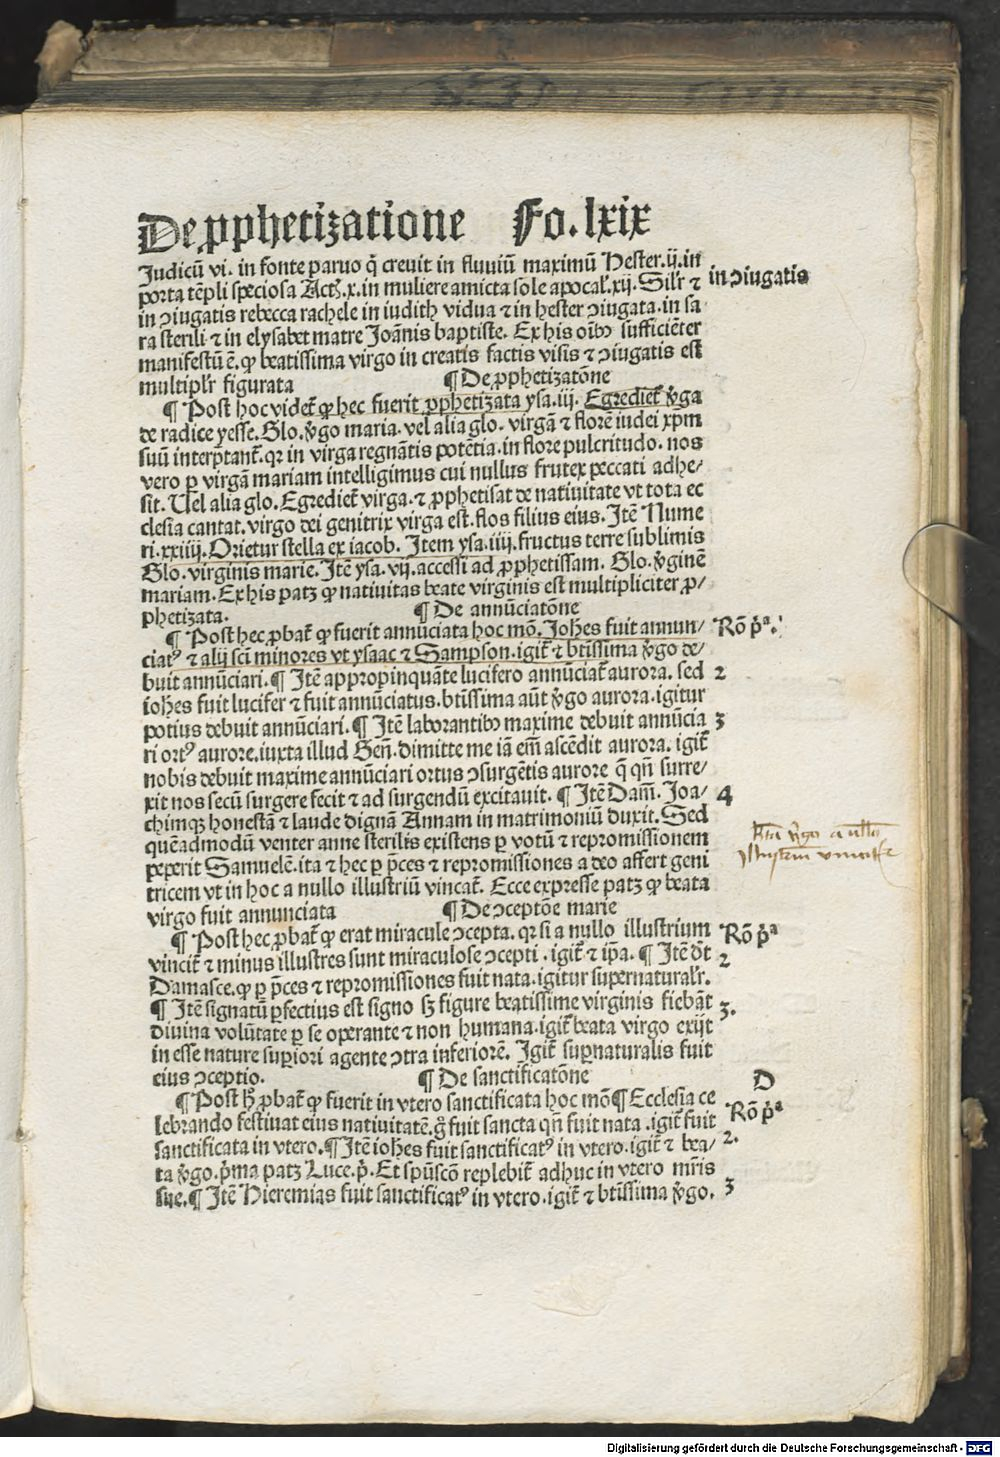 De ꝓphetizatione Fo. lxix
Judicū vi. in fonte paruo q̄ creuit in fluuiū maximū Hester .ij. in
porta tēpli speciosa Actꝫ. x. in muliere amicta sole apocal̕. xij. Sil̕r ⁊
in ↄiugatis
in ↄiugatis rebecca rachele in iudith vidua ⁊ in hester ↄiugata. in sa
ra sterili ⁊ in elysabet matre Joānis baptiste. Ex his oībꝫ sufficiēter
manifestū ē. ꝙ beatissima virgo in creatis factis visis ⁊ ↄiugatis est
multipl̕r figurata ¶ De ꝓphetizatōne
¶ Post hoc videt̄ ꝙ hec fuerit ꝓphetizata ysa. iij. Egrediet̄ v̄ga
de radice yesse. Glo. v̄go maria. vel alia glo. virgā ⁊ florē iudei xpm
suū interp̄tant̄. qꝛ in virga regnātis potētia. in flore pulcritudo. nos
vero ꝑ virgā mariam intelligimus cui nullus frutex peccati adhe⸗
sit. Uel alia glo. Egrediet̄ virga. ⁊ ꝓphetisat de natiuitate vt tota ec
clesia cantat. virgo dei genitrix virga est. flos filius eius. Itē Nume
ri. xxiiij. Orietur stella ex iacob. Item ysa. iiij. fructus terre sublimis
Glo. virginis marie. Itē ysa. vij. accessi ad ꝓphetissam. Glo. v̄ginē
mariam. Ex his patꝫ ꝙ natiuitas beate virginis est multipliciter ꝓ⸗
phetizata. ¶ De annūciatōne
¶ Post hec ꝓbat̄ ꝙ fuerit annūciata hoc mō. Johēs fuit annun⸗
Rō p̄ᵃ.
ciatꝰ ⁊ alij scī minores vt ysaac ⁊ Sampson. igit̄ ⁊ btīssima v̄go de⸗
buit annūciari. ¶ Itē appropinquāte lucifero annūciat̄ aurora. sed
2
iohēs fuit lucifer ⁊ fuit annūciatus. btīssima aūt v̄go aurora. igitur
potius debuit annūciari. ¶ Itē laborantibꝫ maxime debuit annūcia
3
ri ortꝰ aurore. iuxta illud Geñ. dimitte me iā em̄ ascēdit aurora. igit̄
nobis debuit maxime annūciari ortus ↄsurgētis aurore q̄ qn̄ surre⸗
xit nos secū surgere fecit ⁊ ad surgendū excitauit. ¶ Itē Dam̄. Joa⸗
4
chimqꝫ honestā ⁊ laude dignā Annam in matrimoniū duxit. Sed
quēadmodū venter anne sterilis existens ꝑ votū ⁊ repromissionem
peperit Samuelē. ita ⁊ hec ꝑ p̄ces ⁊ repromissiones a deo affert geni
tricem vt in hoc a nullo illustriū vincat̄. Ecce expresse patꝫ ꝙ beata
v̄go a nullo
virgo fuit annunciata ¶ De ↄceptōe marie
¶ Post hec ꝓbat̄ ꝙ erat miracule ↄcepta. qꝛ si a nullo illustrium
Rō p̄ᵃ
vincit̄ ⁊ minus illustres sunt miraculose ↄcepti. igit̄ ⁊ ip̄a. ¶ Itē dt̄
2
Damasce. ꝙ ꝑ p̄ces ⁊ repromissiones fuit nata. igitur supernatural̕r.
¶ Itē signatū ꝑfectius est signo sꝫ figure beatissime virginis fiebāt
3.
diuina volūtate ꝑ se operante ⁊ non humana. igit̄ beata virgo exijt
in esse nature suꝑiori agente ↄtra inferiorē. Igit̄ suꝑnaturalis fuit
eius ↄceptio. ¶ De sanctificatōne
D
¶ Post h̄ ꝓbat̄ ꝙ fuerit in vtero sanctificata hoc mō ¶ Ecclesia ce
Rō p̄ᵃ
lebrando festiuat eius natiuitatē. g̊ fuit sancta qn̄ fuit nata. igit̄ fuit
sanctificata in vtero. ¶ Itē iohēs fuit sanctificatꝰ in vtero. igit̄ ⁊ bea⸗
2.
ta v̄go. p̄ma patꝫ Luce. p̄. Et spūscō replebit̄ adhuc in vtero mr̄is
sue. ¶ Itē Hieremias fuit sanctificatꝰ in vtero. igit̄ ⁊ btīssima v̄go.
3
Digitalisierung gefördert durch die Deutsche Forschungsgemeinschaft - DFG